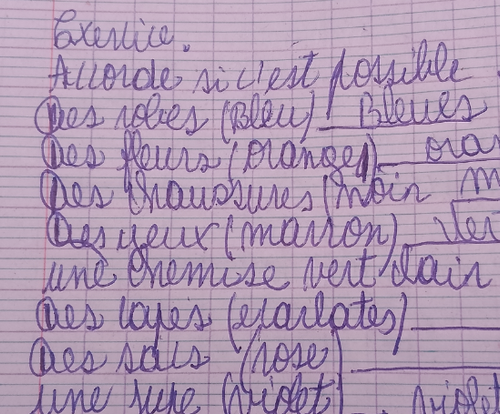 Exercice.
Accorde si c'est possible
Des robes (Bleu) Bleues
Des fleurs (orange) ora
Des chaussures (noir m
Des yeux (marron) Ver
une chemise vert clair
Des capes (ecarlates)
Des sacs (rose)
une jupe (violet) violet